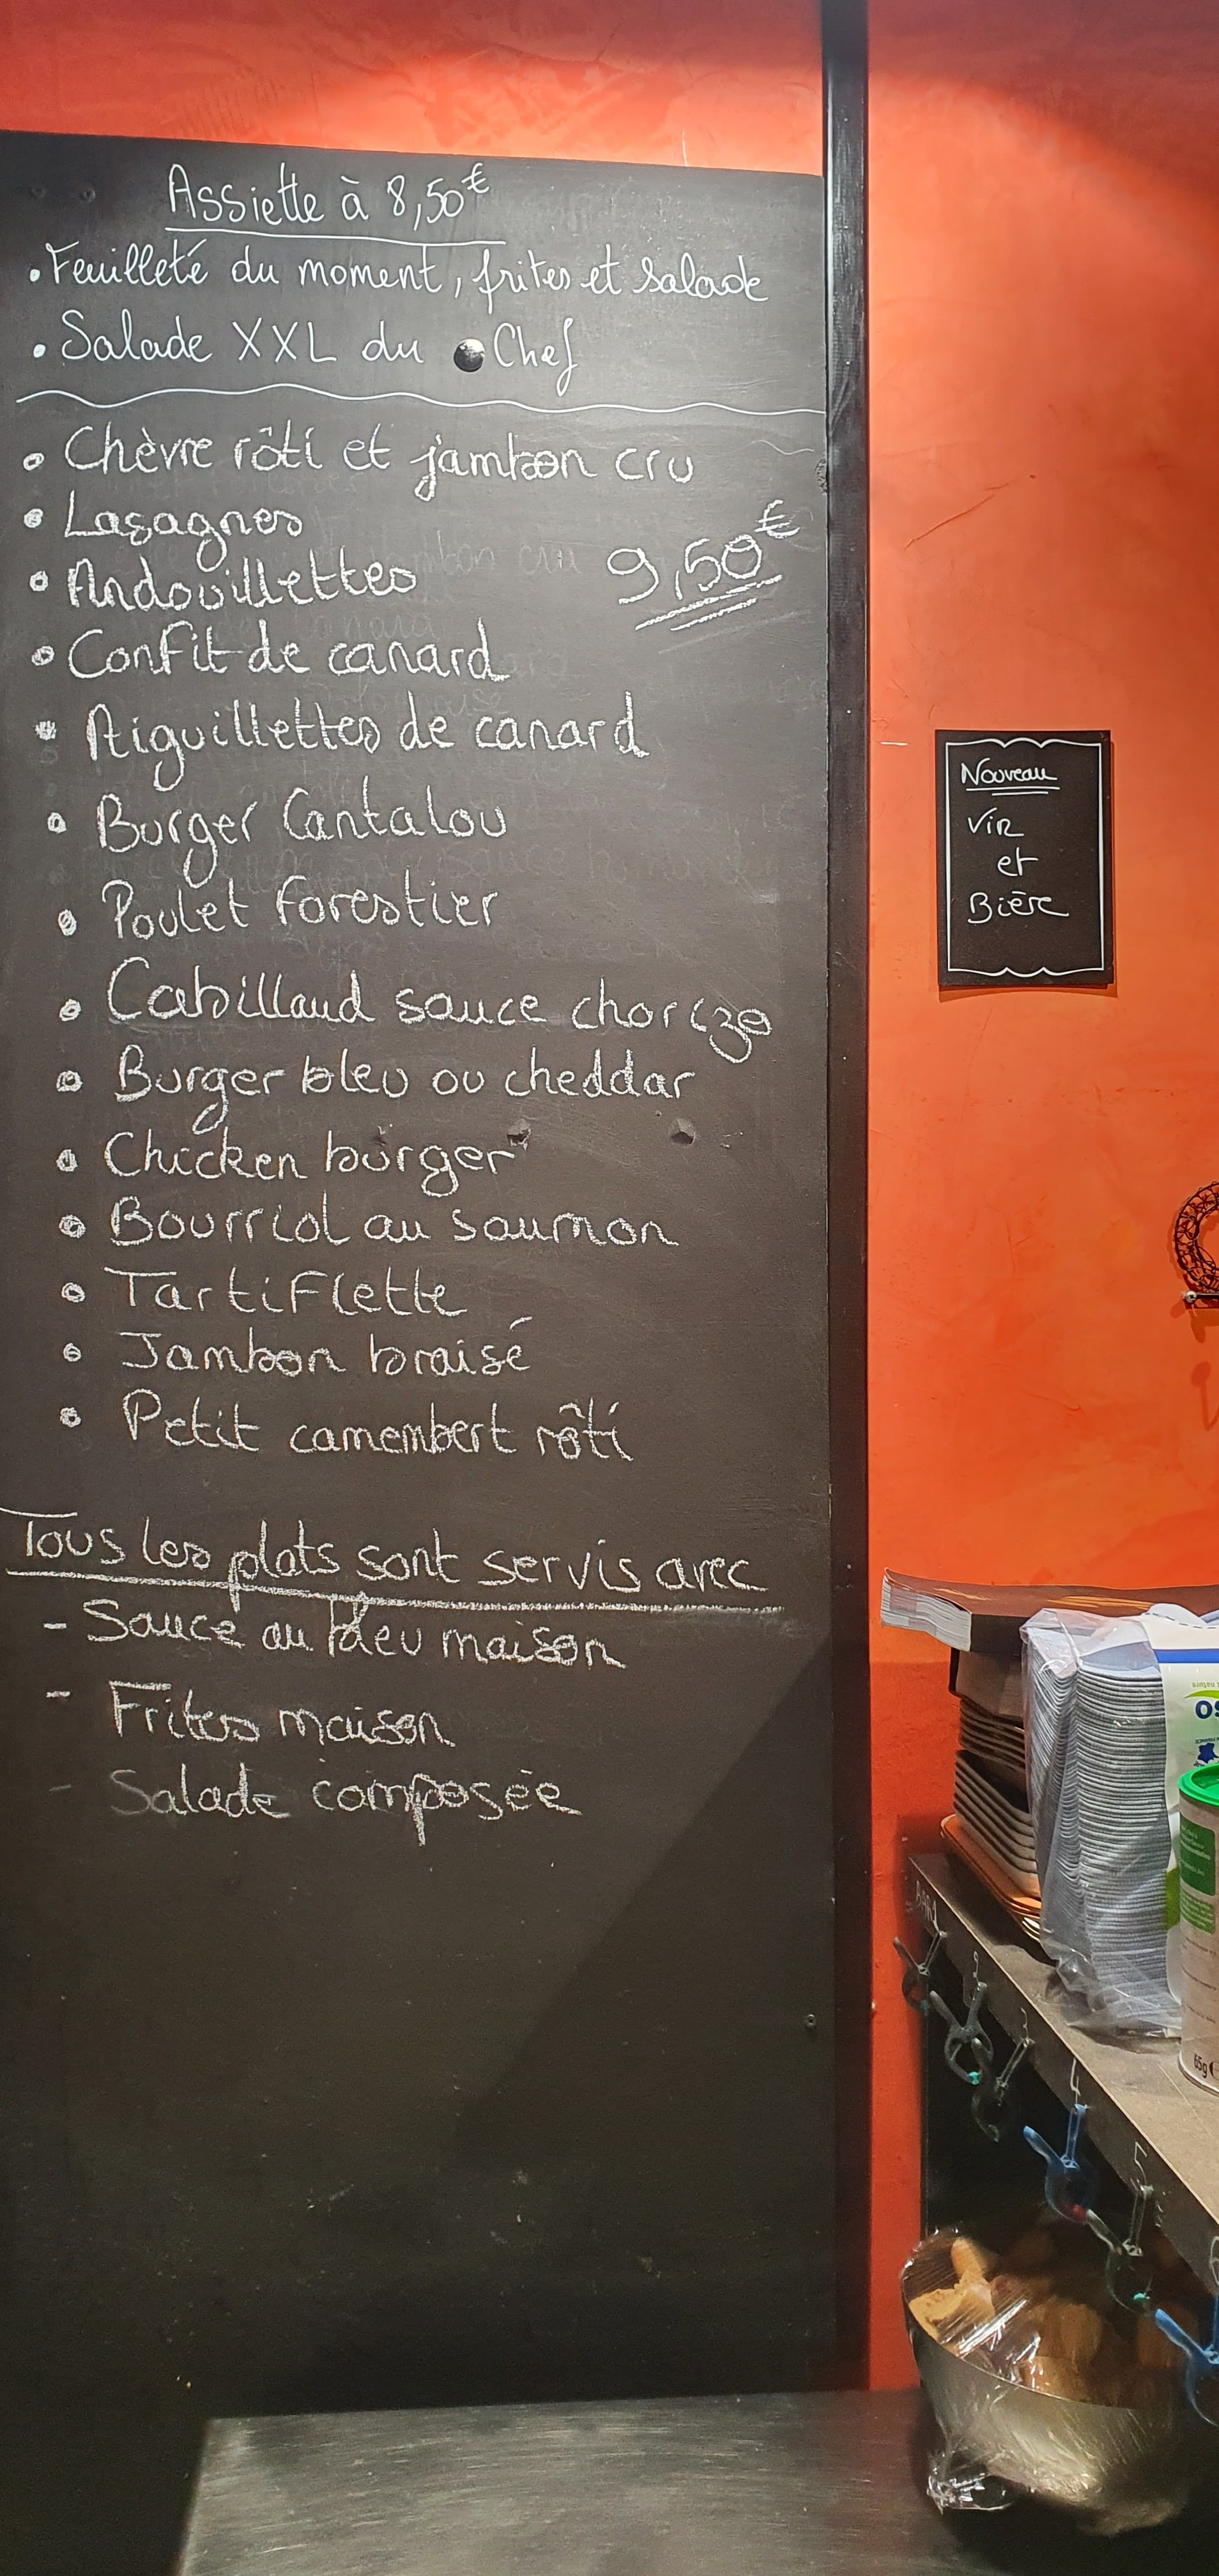 Assiette à 8,50€
• Feuilleté du moment, frites et salade
• Salade XXL du Chef
• Chèvre rôti et jambon cru
• Lasagnes
9,50€
• Andouillettes
• Confit de canard
• Aiguillettes de canard
• Burger Cantalou
• Poulet forestier
• Cabillaud sauce chorizo
• Burger bleu ou cheddar
• Chicken burger
• Bourriol au saumon
• Tartiflette
• Jambon braisé
• Petit camembert rôti
Tous les plats sont servis avec
- Sauce au bleu maison
- Frites maison
- Salade composée
Nouveau
Vin
et
Bière
4
5
65g